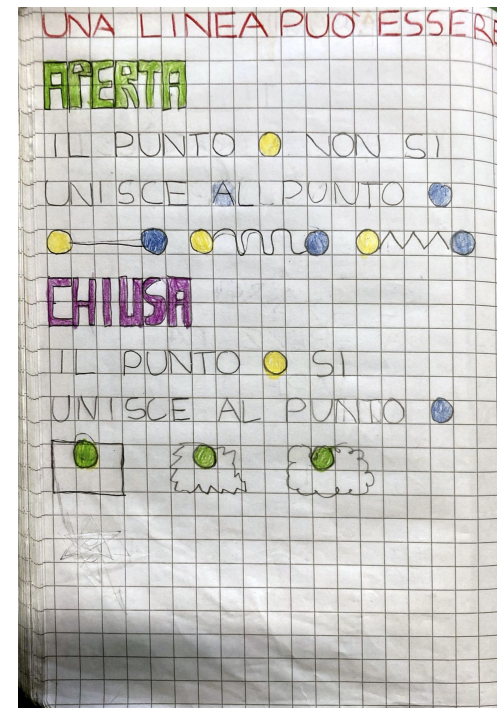 UNA LINEA PUÒ ESSERE
APERTA
IL PUNTO NON SI
UNISCE AL PUNTO
CHIUSA
IL PUNTO SI
UNISCE AL PUNTO